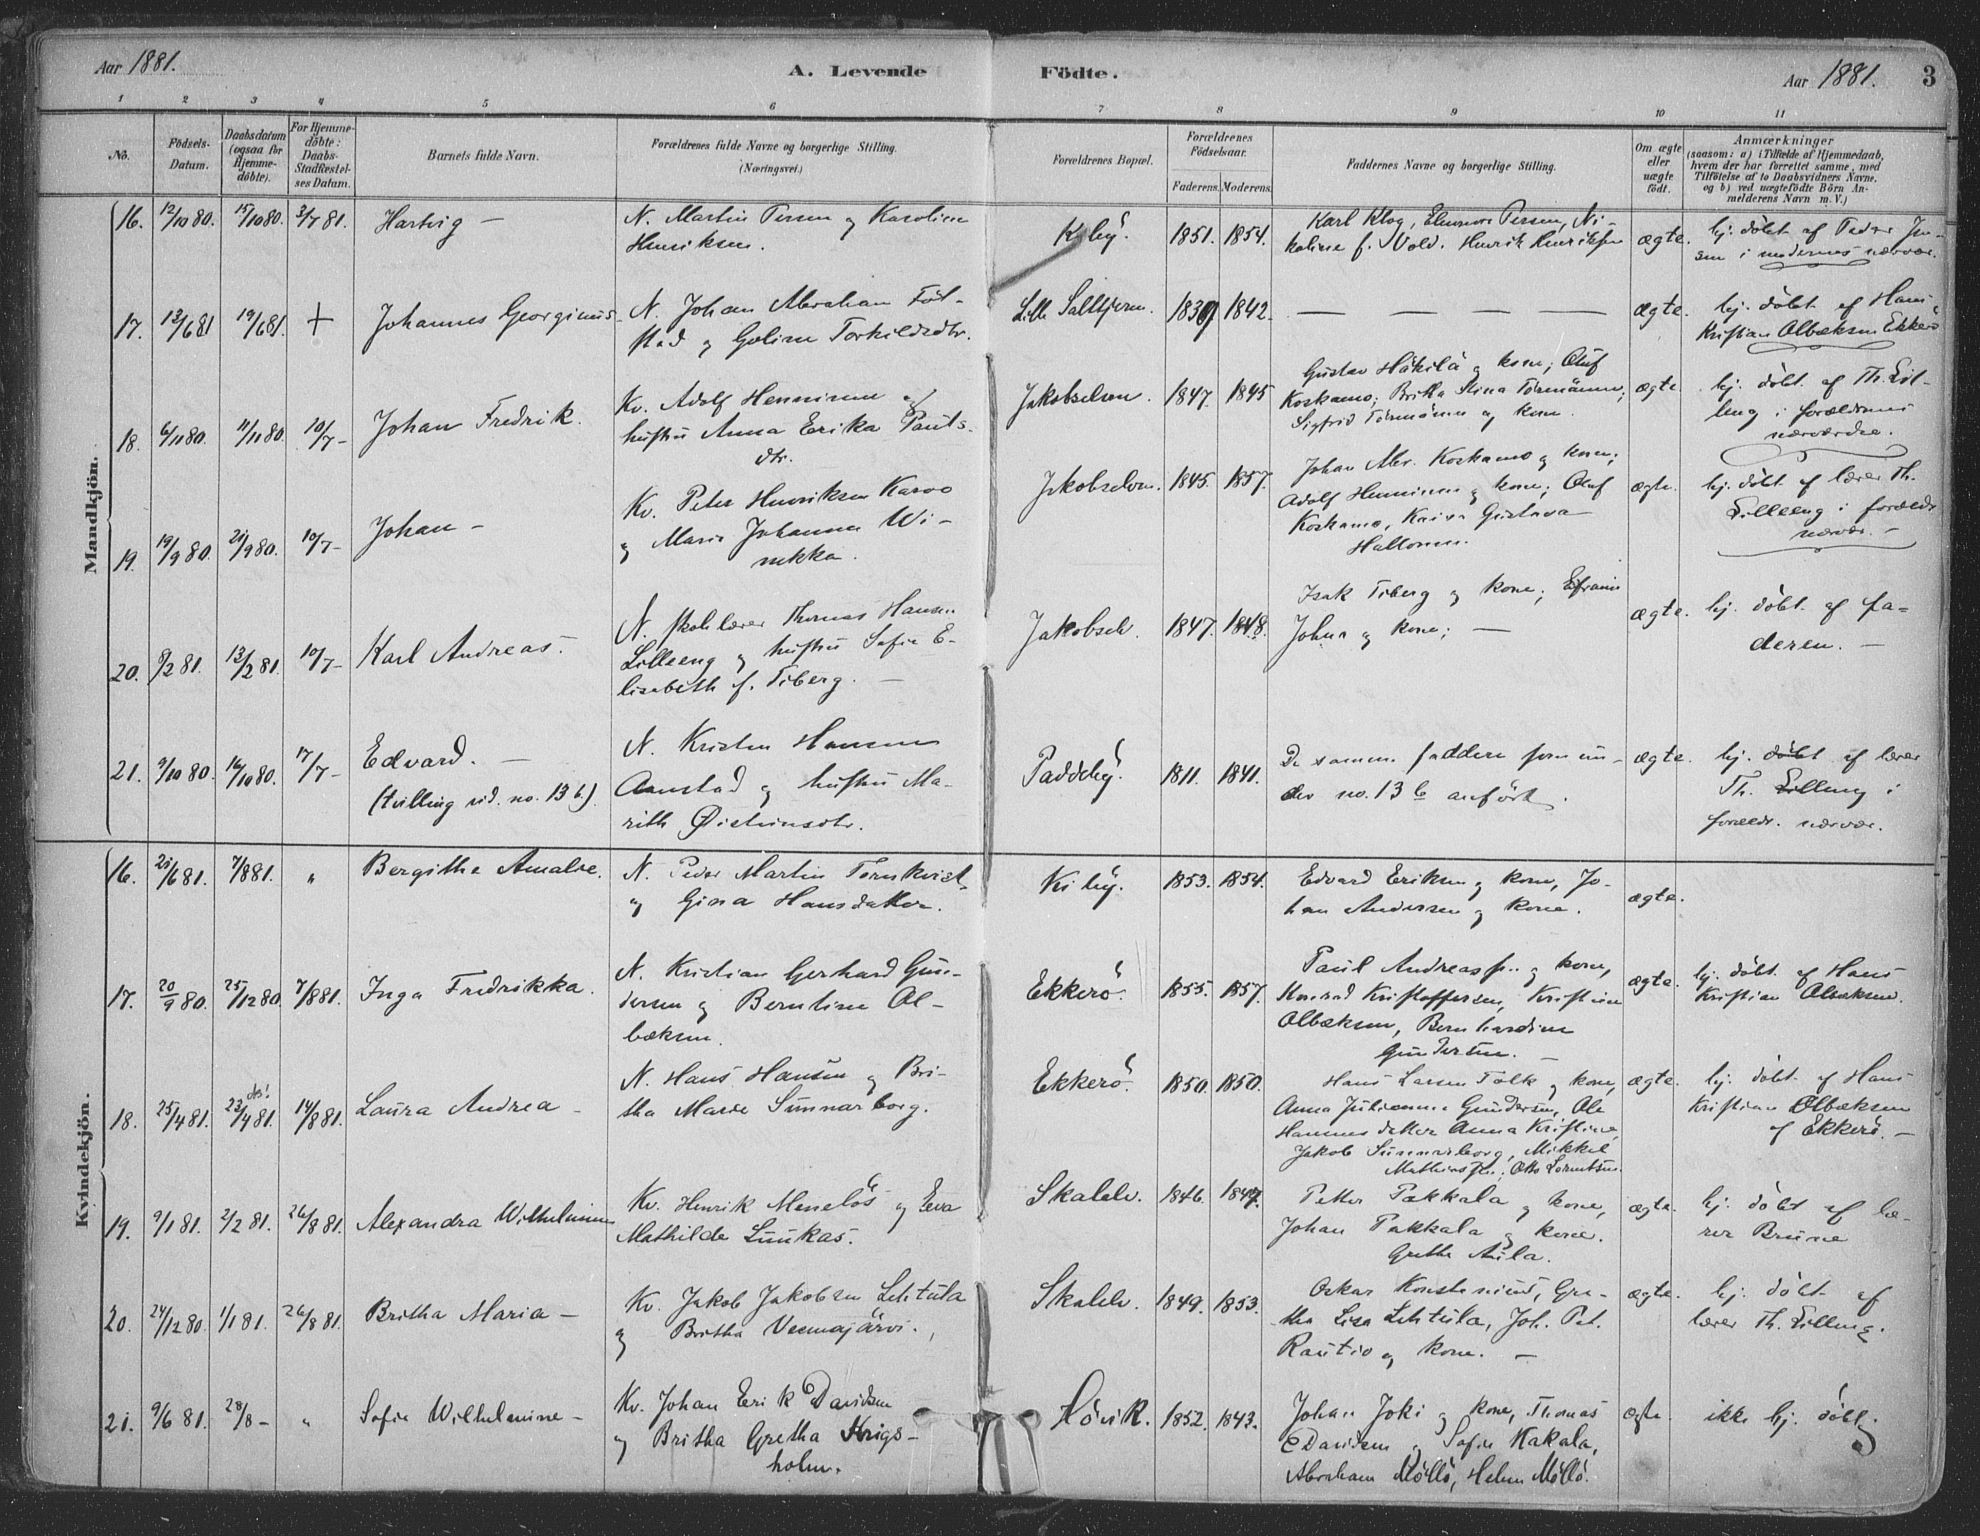 Aar 1881.
A. Levende Födte.
Aar 1881. 3
1 2 3 4 5 6 7 8 9 10 11
No.
Födsels-
Datum.
Daabsdatum
(ogsaa for
Hjemme-
döbte).
For Hjemme-
döbte:
Daabs-
Stadfæstel-
ses Datum.
Barnets fulde Navn.
Forældrenes fulde Navne og borgerlige Stilling.
(Næringsvei.)
Forældrenes Bopæl.
Forældrenes
Födselsaar.
Faderens. Moderens.
Faddernes Navne og borgerlige Stilling.
Om ægte
eller
uægte
födt.
Anmærkninger
(saasom: a) i Tilfælde af Hjemmedaab,
hvem der har forrettet samme, med
Tilföielse af to Daabsvidners Navne,
og b) ved uægtefödte Börn An-
melderens Navn m. V.)
Mandkjön.
16. 12/10 80. 15/10 80. 3/7 81. Hartvig —
N. Martin Persen og Karoline
Henriksen.
Kiby. 1851. 1854.
Karl Klog, Elenore Persen, Ni-
koline f. Vold. Henrik Henriksen
ægte.
hj. döbt af Peder Jen-
sen i moderens nærvær.
17. 13/6 81 19/6 81. + Johannes Georginus
N. Johan Abraham Föl-
stad og Goline Torkildsdtr.
Lille Saltfjern. 1839 1842.
— — — — —
ægte.
hj. döbt af Hans
Kristian Olbæksen Ekkerö
18. 6/11 80. 11/11 80. 10/7 - Johan Fredrik.
Kv. Adolf Henninen og
hustru Anna Erika Pauls-
dtr.
Jakobselven. 1847. 1845
Gustav Häkilä og kone; Oluf
Koskamo; Brita Stina Törmänen;
Sigfrid Törmänen og kone.
ægte.
hj. döbt af Th. Lil-
leng i forældrenes
nærværelse.
19. 19/9 80. 21/9 80. 10/7 - Johan -
Kv. Peter Henriksen Karvo
og Maria Johanna Wi-
nikka.
Jakobselven. 1845. 1857.
Johan Abr. Koskamo og kone;
Adolf Henninen og kone; Oluf
Koskamo, Kaisa Gustava
Haltonen.
ægte.
hj. döbt af lærer Th.
Lilleeng i forældr.
nærvær. -
20. 8/2 81. 13/2 81. 10/7 - Karl Andreas.
N. skolelærer Thomas Hansen
Lilleeng og hustru Sofie E-
lisabeth f. Tiberg. —
Jakobselv. 1847. 1848.
Isak Tiberg og kone; Efraim
Johna og kone; —
ægte.
hj. döbt af fa-
deren. —
21. 9/10 80. 16/10 80. 17/7 - Edvard. —
(tvilling vid. no. 13 b.)
N. Kristen Hansen
Aanstad og hustru Ma-
rith Öisteinsdtr.
Paddeby. 1811. 1841.
De samme faddere som un-
der no. 13 b anfört.
ægte.
hj. döbt af lærer
Th. Lilleeng i
forældr. nærvær.
Kvindekjön.
16. 21/6 81. 7/8 81. „ Bergitha Amalie.
N. Peder Martin Törnkvist
og Gina Hansdatter.
Kiby. 1853. 1854.
Edvard Eriksen og kone, Jo-
han Andersen og kone.
ægte.
17. 20/9 80. 25/12 80 7/8 81. Inga Fredrikka.
N. Kristian Gerhard Gun-
dersen og Berntine Ol-
bæksen.
Ekkerö. 1855. 1857.
Paul Andreassen og kone,
Konrad Kristoffersen, Kristian
Olbæksen, Bernhardine
Gundersen. —
ægte.
hj. döbt af Hans
Kristian Olbæksen.
18. 25/4 81. 23/4 81. 14/8 81. Laura Andrea -
N. Hans Hansen og Bri-
tha Marie Sunnarborg.
Ekkerö. 1850. 1850.
Hans Larsen Tolk og kone,
Anna Julianna Gundersen, Ole
Hannesdatter Anna Kristine,
Jakob Sunnarborg, Mikkel
Mathiassen, Otto Lorentsen.
ægte.
hj. döbt af Hans
Kristian Olbæksen
af Ekkerö. —
19. 9/1 81. 2/2 81. 26/8 81. Alexandra Wilhelmina
Kv. Henrik Menelös og Eeva
Mathilde Luukas.
Skalelv. 1846. 1847.
Petter Pakkala og kone,
Johan Pakkala og kone.
Grethe Aula.
ægte.
hj. döbt af læ-
rer Brune
20. 24/12 80. 1/1 81. 26/8 81. Britha Maria —
Kv. Jakob Jakobsen Lehtula
og Britha Veemajärvi.
Skalelv. 1849. 1853.
Oskar Konstenius, Gre-
tha Lisa Lehtula, Joh. Pet.
Rautio og kone. —
ægte.
hj. döbt af
lærer Th. Lilleng.
21. 9/6 81. 28/8 - „ Sofie Wilhelmine -
Kv. Johan Erik Davidsen
og Britha Gretha Krigs-
holm.
1852. 1843.
Johan Joki og kone, Thomas
Davidsen og Sofie Kakala,
Abraham Möllö, Helena Möllö.
ægte.
ikke hj. döbt.